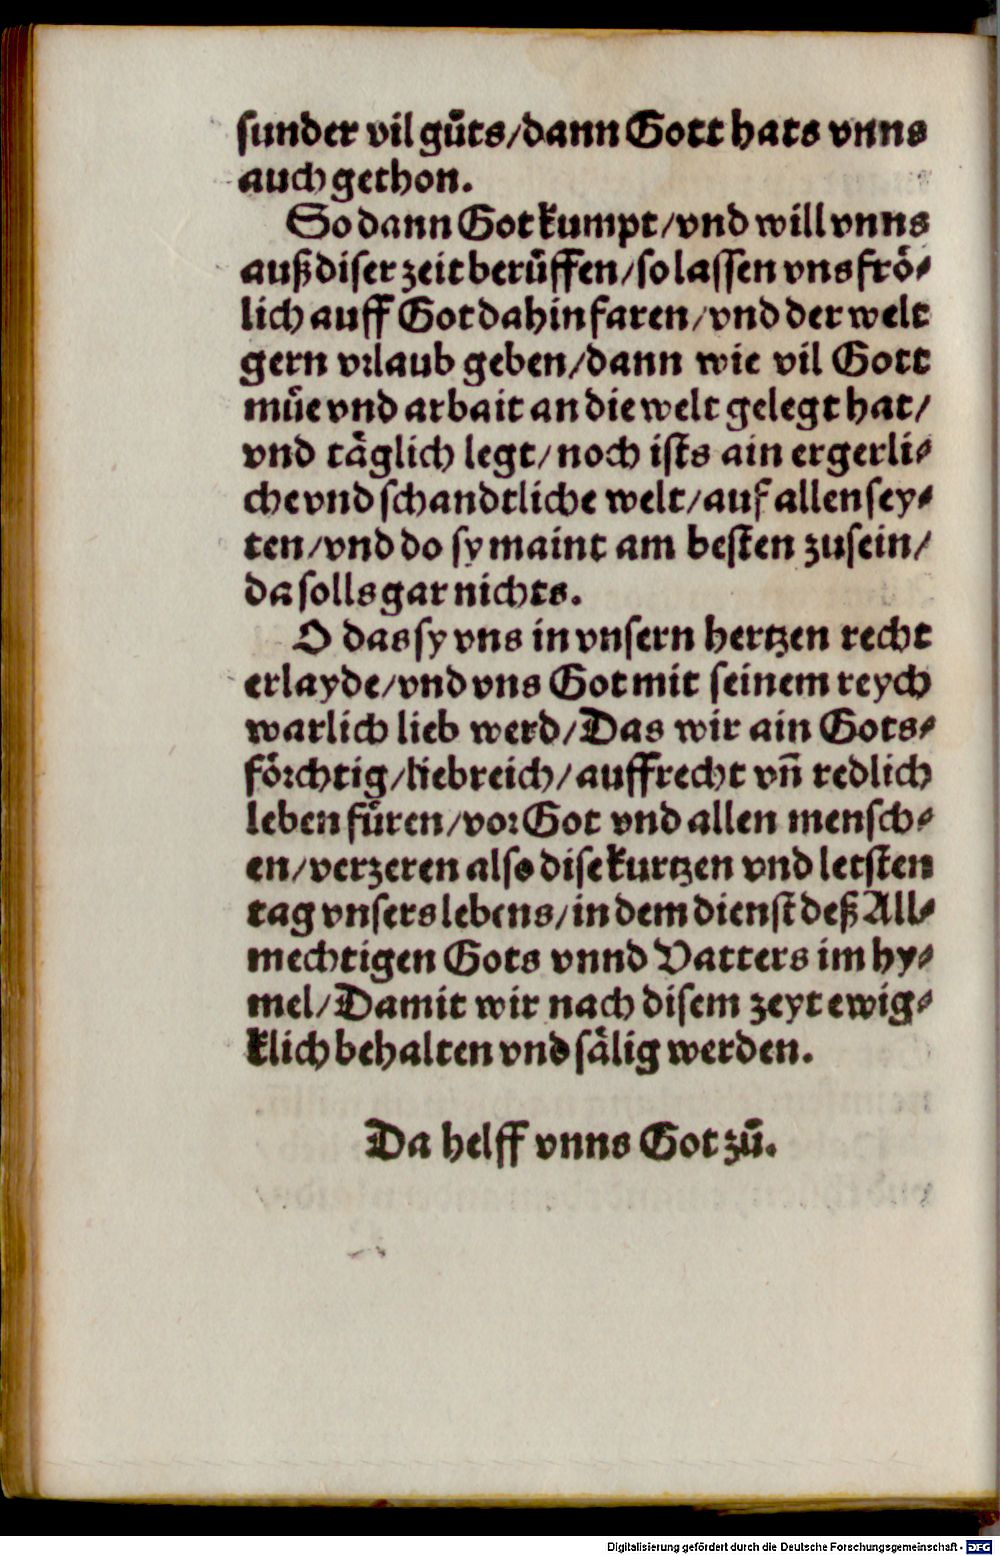 sunder vil gůts/dann Gott hats vnns
auch gethon.
So dann Got kumpt/vnd will vnns
auß diser zeit berůffen/so lassen vns frö⸗
lich auff Got dahin faren/vnd der welt
gern vrlaub geben/dann wie vil Gott
müe vnd arbait an die welt gelegt hat/
vnd täglich legt/noch ists ain ergerli⸗
che vnd schandtliche welt/auf allen sey⸗
ten/vnd do sy maint am besten zusein/
da solls gar nichts.
O das sy vns in vnsern hertzen recht
erlayde/vnd vns Got mit seinem reych
warlich lieb werd/Das wir ain Gots⸗
förchtig/liebreich/auffrecht vn̄ redlich
leben füren/vor Got vnd allen mensch⸗
en/verzeren also dise kurtzen vnd letsten
tag vnsers lebens/in dem dienst deß All⸗
mechtigen Gots vnnd Vatters im hy⸗
mel/Damit wir nach disem zeyt ewig⸗
klich behalten vnd sälig werden.
Da helff vnns Got zů.
Digitalisierung gefördert durch die Deutsche Forschungsgemeinschaft - DFG